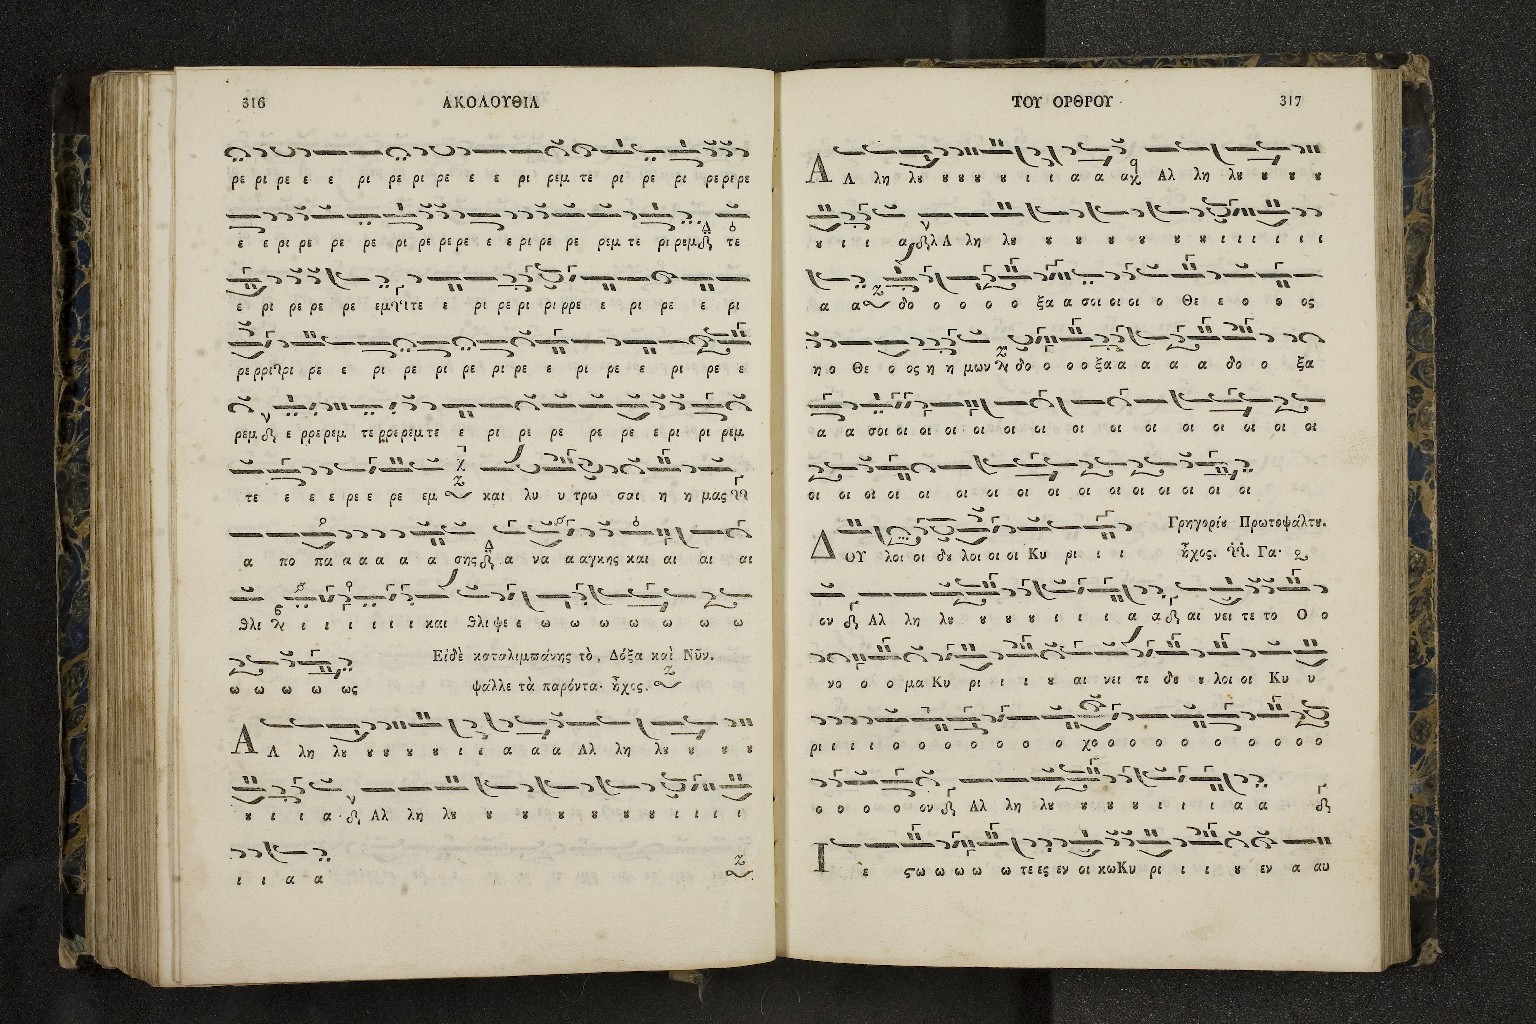 316 ΑΚΟΛΟΥΘΙΑ
ρε ρι ρε ε ε ρι ρε ρι ρε ε ε ρι ρεμ τε ρι ρε ρι ρε ρε ρε
ε ε ρι ρε ρε ρε ρι ρε ρε ρε ε ε ρι ρε ρε ρεμ τε ρι ρεμ τε
ε ρι ρε ρε ρε εμ τε ε ρι ρε ρι ρι ρρε ε ρι ρε ε ρι
ρε ρρι ρι ρε ε ρι ρε ρι ρε ρι ρε ε ρι ρε ε ρι ρε ε
ρεμ ε ρρε ρεμ τε ρρε ρεμ τε ε ρι ρε ρε ρε ρε ε ρι ρι ρεμ
τε ε ε ε ρε ε ρε εμ και λυ υ τρω σαι η η μας
α πο πα α α α α α σης α να α αγκης και αι αι αι
θλι ι ι ι ι ι ι και θλι ψε ε ω ω ω ω ω ω ω
Εἰδὲ καταλιμπάνης τὸ, Δόξα καὶ Νῦν.
ω ω ω ω ως ψάλλε τὰ παρόντα· ἦχος.
Α Λ λη λȣ ȣ ȣ ȣ ȣ ι ι α α α Αλ λη λȣ ȣ ȣ ȣ
ȣ ι ι α · Αλ λη λȣ ȣ ȣ ȣ ȣ ȣ ȣ ι ι ι ι
ι ι α α
ΤΟΥ ΟΡΘΡΟΥ 317
Α Λ λη λȣ ȣ ȣ ȣ ȣ ι ι α α α Αλ λη λȣ ȣ ȣ ȣ
ȣ ι ι α λΛ λη λȣ ȣ ȣ ȣ ȣ ȣ ȣ ι ι ι ι ι ι
α α δο ο ο ο ο ξα α σοι οι οι ο Θε ε ο ο ος
η ο Θε ο ος η η μων δο ο ο ο ξα α α α α δο ο ξα
α α σοι οι οι οι οι οι οι οι οι οι οι οι οι οι οι
οι οι οι οι οι οι οι οι οι οι οι οι οι οι οι
Γρηγορίȣ Πρωτοψάλτȣ.
Δ ΟΥ λοι οι δȣ λοι οι οι Κυ ρι ι ι ἦχος. Γα·
ον Αλ λη λȣ ȣ ȣ ȣ ι ι ι α α αι νει τε το Ο ο
νο ο ο μα Κυ ρι ι ι ȣ αι νει τε δȣ ȣ λοι οι Κυ υ
ρι ι ι ι ο ο ο ο ο ο ο ο χο ο ο ο ο ο ο ο ο
ο ο ο ο ον Αλ λη λȣ ȣ ȣ ȣ ι ι ι α α
Ι ὲ ςω ω ω ω ω τε ες εν οι κω Κυ ρι ι ι ȣ εν α αυ